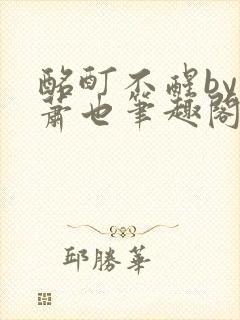 酩酊不醒by
萧也筆趣閣
邱勝華